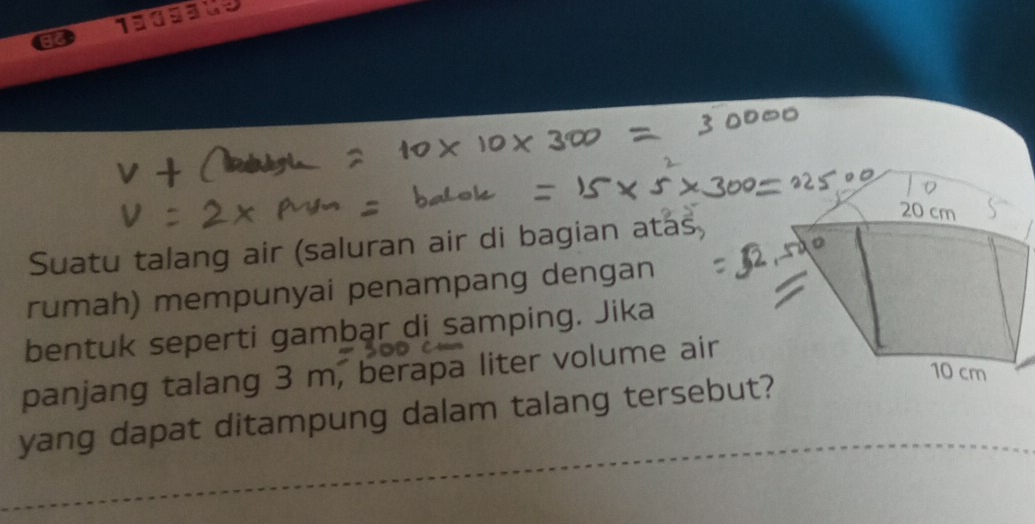 2B
V + = 10 × 10 × 300 = 30000
V = 2 × = balok = 15 × 5² × 300 =
10
20 cm
5
Suatu talang air (saluran air di bagian atas,
rumah) mempunyai penampang dengan
bentuk seperti gambar di samping. Jika
= 300 cm
panjang talang 3 m, berapa liter volume air
yang dapat ditampung dalam talang tersebut?
10 cm